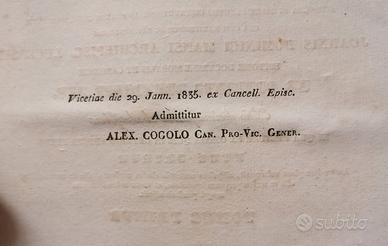 Vicetiae die 29. Jann. 1835. ex Cancell. Episc.
Admittitur
ALEX. COGOLO CAN. PRO-VIC. GENER.
subito